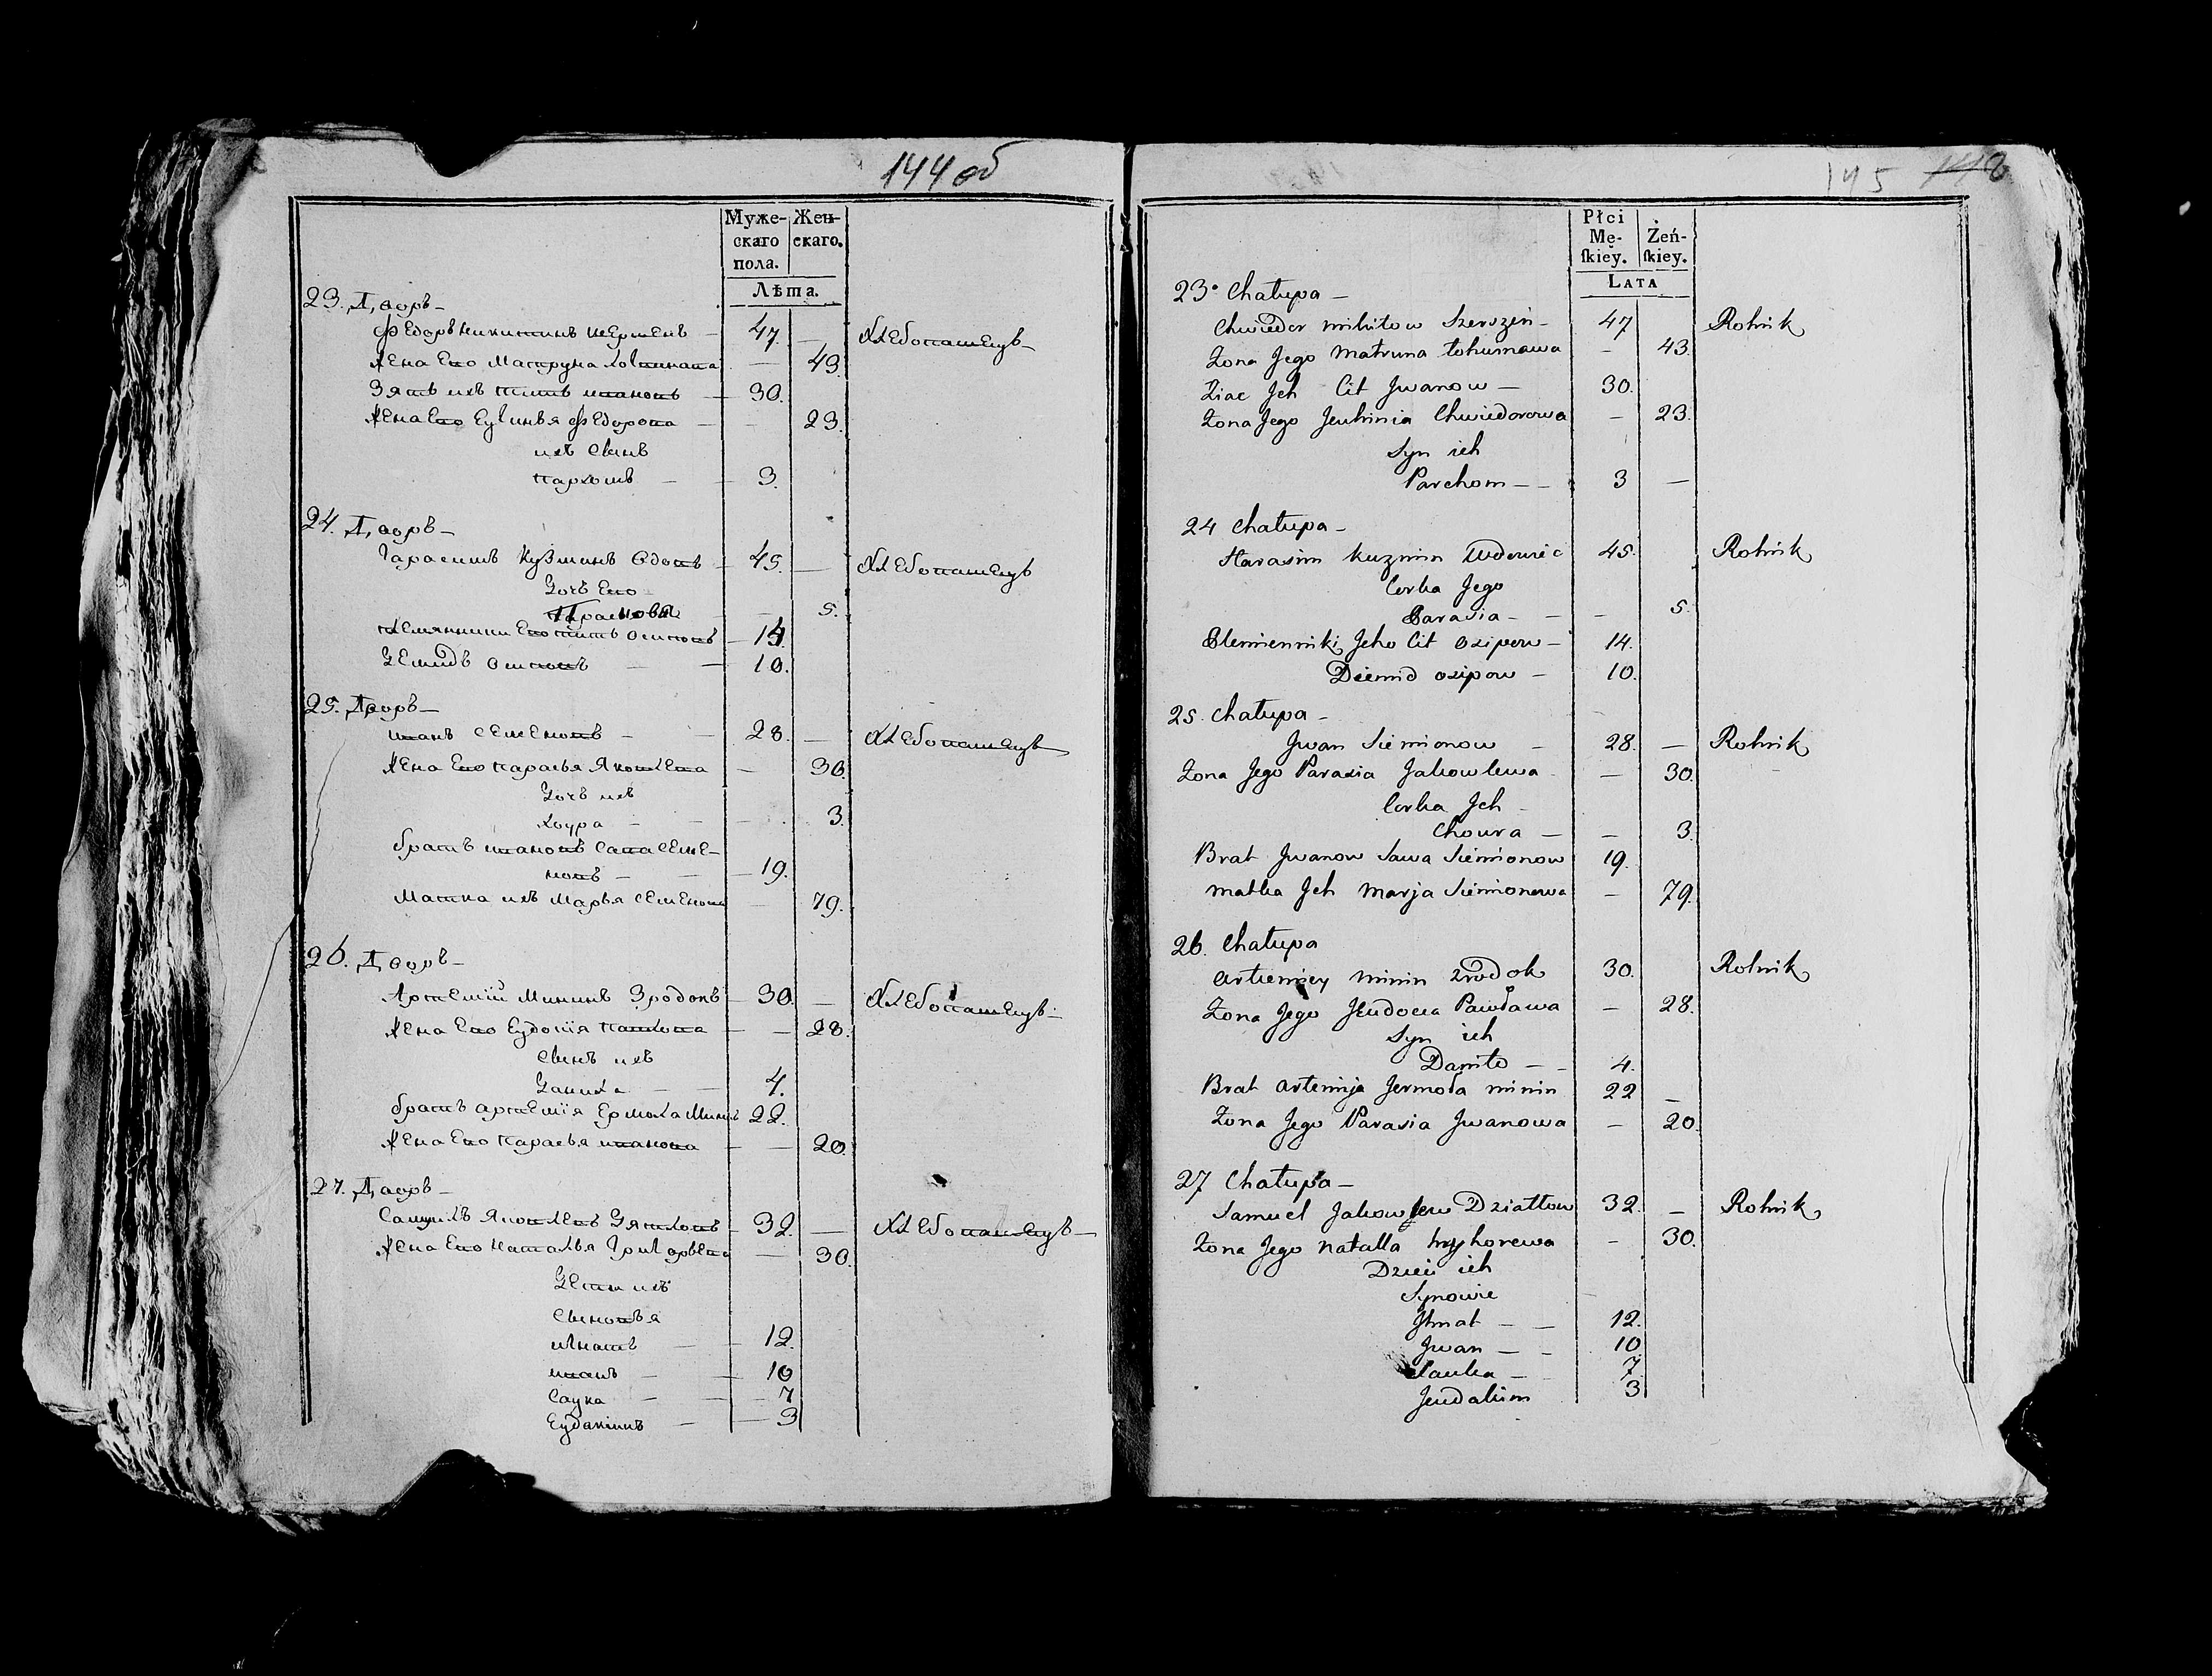 144 об
Муже-
скаго
пола.
Жен-
скаго.
Лѣта.
23. Дворъ -
Федоръ Никитинъ Шершенъ - 47. -
Хлебопашецъ -
Жена Его Матруна Логвинова - 43.
Зять ихъ Титъ Ивановъ - 30.
Жена Его Еугинья Федорова - - 23.
ихъ Сынъ
Пархомъ - - 3.
24. Дворъ -
Гарасимъ Кузминъ 45. -
Хлебопашецъ
Дочъ Его
- 5.
Племянники Его Титъ Осиповъ - 14.
Демидъ Осиповъ - - 10.
25. Дворъ -
Иванъ Семеновъ - - 28. -
Хлебопашецъ
Жена Его Парасья Яковлева - 30.
Дочъ ихъ
Хоура - - - 3.
братъ Ивановъ Сава Семе-
новъ - - 19.
Матка ихъ Марья Семенова - 79.
26. Дворъ -
Артемій Мининъ Зродокъ - 30. -
Хлебопашецъ -
Жена Его Еудокія Павлова - - 28.
Сынъ ихъ
Данила - - 4.
братъ Артемія Ермола Мининъ 22.
Жена Его Парасья Иванова - - 20.
27. Дворъ -
Самуилъ Яковлевъ Дятловъ - 32. -
Хлебопашецъ -
Жена Его Наталья Григорьева - 30.
Дети ихъ
Сыновья
Игнатъ - - 12.
Иванъ - - 10
Саука - - 7
Еудакимъ - - 3
145
Płci
Mę-
skiey.
Żeń-
skiey.
LATA
23. Chałupa -
Chwiedor Mikitow Szerszeń - 47
Rolnik
Żona Jego Matruna - 43.
Ziać Jch Cit Jwanow - 30.
Żona Jego Jeuhinia Chwiedorowa - 23.
Syn ich
Parchom - - 3 -
24 Chałupa -
Harasim Kuzmin 45.
Rolnik
Corka Jego
Parasia - - - 5.
Plemienniki Jeho Cit Osipow - 14.
Diemid Osipow - 10.
25. Chałupa -
Jwan Siemionow - 28. -
Rolnik
Żona Jego Parasia Jakowlewa - 30.
Corka Jch -
Choura - - 3.
Brat Jwanow Sawa Siemionow 19.
Matka Jch Marja Siemionowa - 79.
26. Chałupa
Artiemiey Minin Zrodok 30.
Rolnik
Żona Jego Jeudocia Pawłowa - 28.
Syn ich
Daniło - - 4.
Brat Artemija Jermoła Minin 22 -
Żona Jego Parasia Jwanowa - 20
27 Chałupa -
Samuel Jakowlew Dziatłow 32. -
Rolnik
Żona Jego Natalla Hryhorewa - 30.
Dzieci ich
Synowie
Jhnat - - 12.
Jwan - - 10
Sauka - - 7.
Jeudakim 3